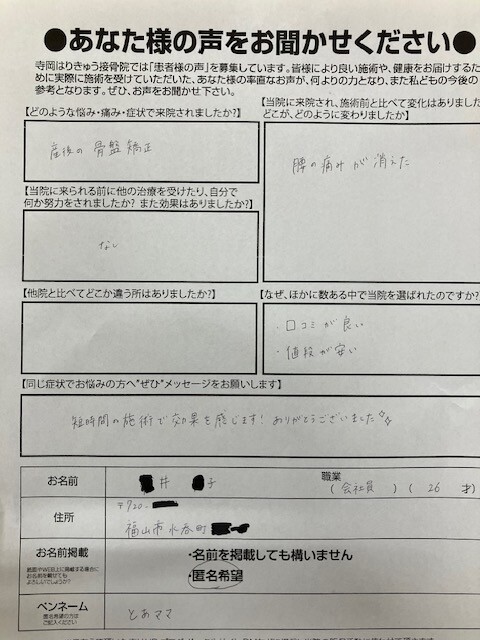 ●あなた様の声をお聞かせください●
寺岡はりきゅう接骨院では「患者様の声」を募集しています。皆様により良い施術や、健康をお届けするた
めに実際に施術を受けていただいた、あなた様の率直なお声が、何よりの力となり、また私どもの今後の
参考となります。ぜひ、お声をお聞かせ下さい。
【どのような悩み・痛み・症状で来院されましたか?】
産後の骨盤矯正
【当院に来院され、施術前と比べて変化はありました
どこが、どのように変わりましたか】
腰の痛みが消えた
【当院に来られる前に他の治療を受けたり、自分で
何か努力をされましたか? また効果はありましたか?】
なし
【他院と比べてどこか違う所はありましたか?】
【なぜ、ほかに数ある中で当院を選ばれたのですか?
・口コミが良い
・値段が安い
【同じ症状でお悩みの方へ"ぜひ"メッセージをお願いします】
短時間の施術で効果を感じます!ありがとうございました
お名前
井 子
職業
(会社員) (26 才)
住所
〒720-
福山市水呑町
お名前掲載
紙面やWEB上に掲載する場合に
お名前を載せても
よろしいでしょうか?
・名前を掲載しても構いません
・匿名希望
ペンネーム
匿名希望の方は
ご記入ください
とあママ